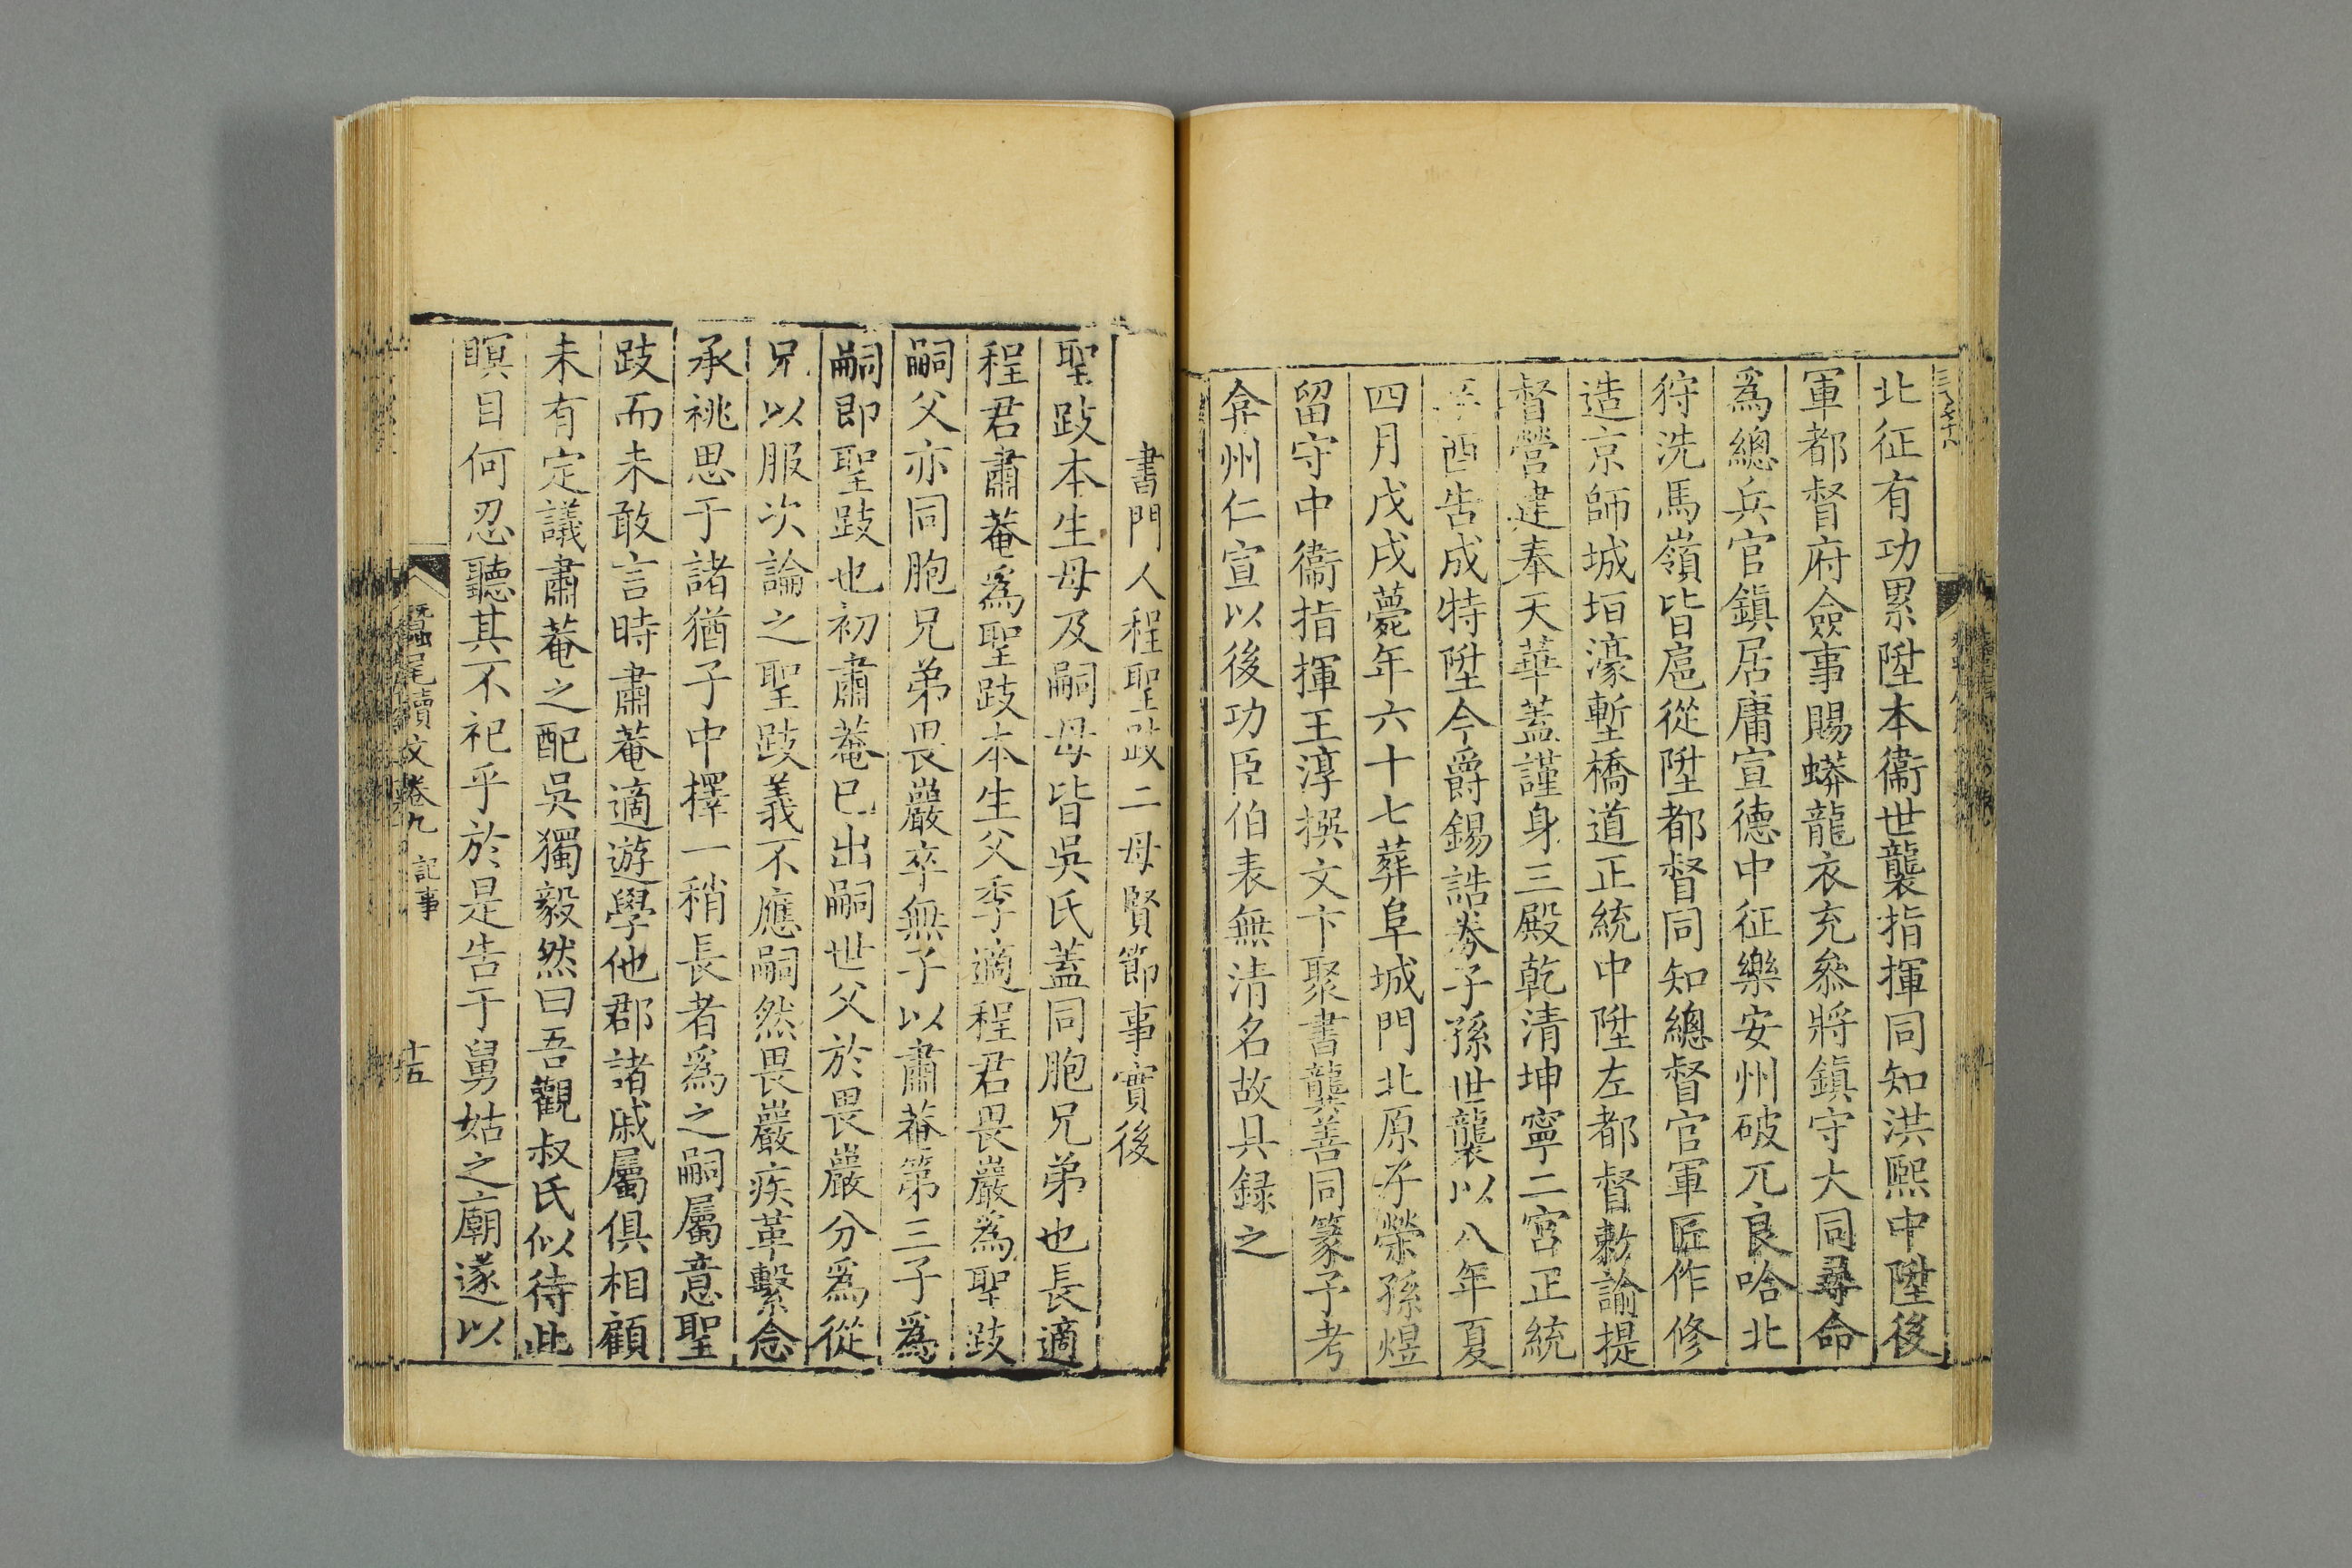 北征有功累陞本衞世襲指揮同知洪熙中陞後
軍都督府僉事賜蟒龍衣充叅將鎮守大同尋命
爲總兵官鎮居庸宣德中征樂安州破兀良哈北
狩洗馬嶺皆扈從陞都督同知總督官軍匠作修
造京師城垣濠塹橋道正統中陞左都督勅諭提
督營建奉天華蓋謹身三殿乾清坤寧二宮正統
辛酉告成特陞今爵錫誥券子孫世襲以八年夏
四月戊戌薨年六十七葬阜城門北原子榮孫煜
留守中衞指揮王淳撰文卞聚書龔善同篆予考
弇州仁宣以後功臣伯表無清名故具録之
書門人程聖跂二母賢節事實後
聖跂本生母及嗣母皆吳氏蓋同胞兄弟也長適
程君肅菴爲聖跂本生父季適程君畏巖爲聖跂
嗣父亦同胞兄弟畏巖卒無子以肅菴第三子爲
嗣即聖跂也初肅菴已出嗣世父於畏巖分爲從
兄以服次論之聖跂義不應嗣然畏巖疾革繫念
承祧思于諸猶子中擇一稍長者爲之嗣屬意聖
跂而未敢言時肅菴適遊學他郡諸戚屬俱相顧
未有定議肅菴之配吳獨毅然曰吾觀叔氏似待此
瞑目何忍聽其不祀乎於是告于舅姑之廟遂以
蠶尾續文卷九 記事 十五